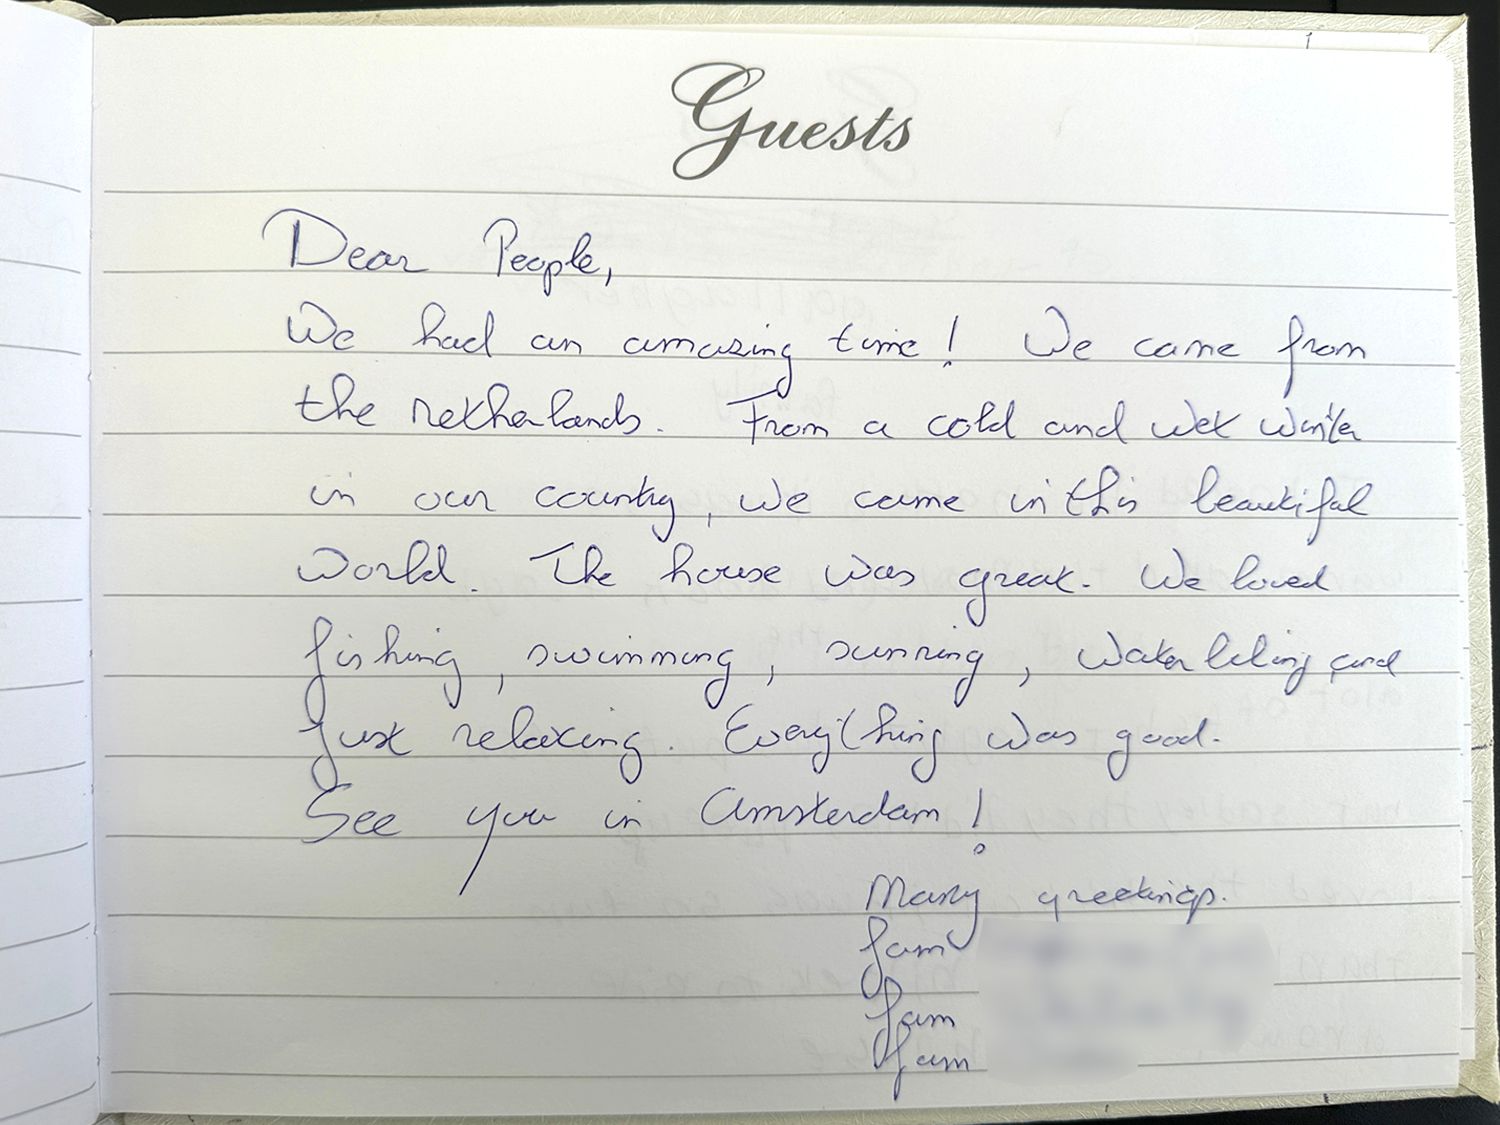 Guests
Dear People,
We had an amazing time! We came from
the netherlands. From a cold and wet winter
in our country, we came in this beautiful
world. The house was great. We loved
fishing, swimming, sunning, water and
just relaxing. Everything was good.
See you in Amsterdam!
Many greetings.
fam
fam
fam